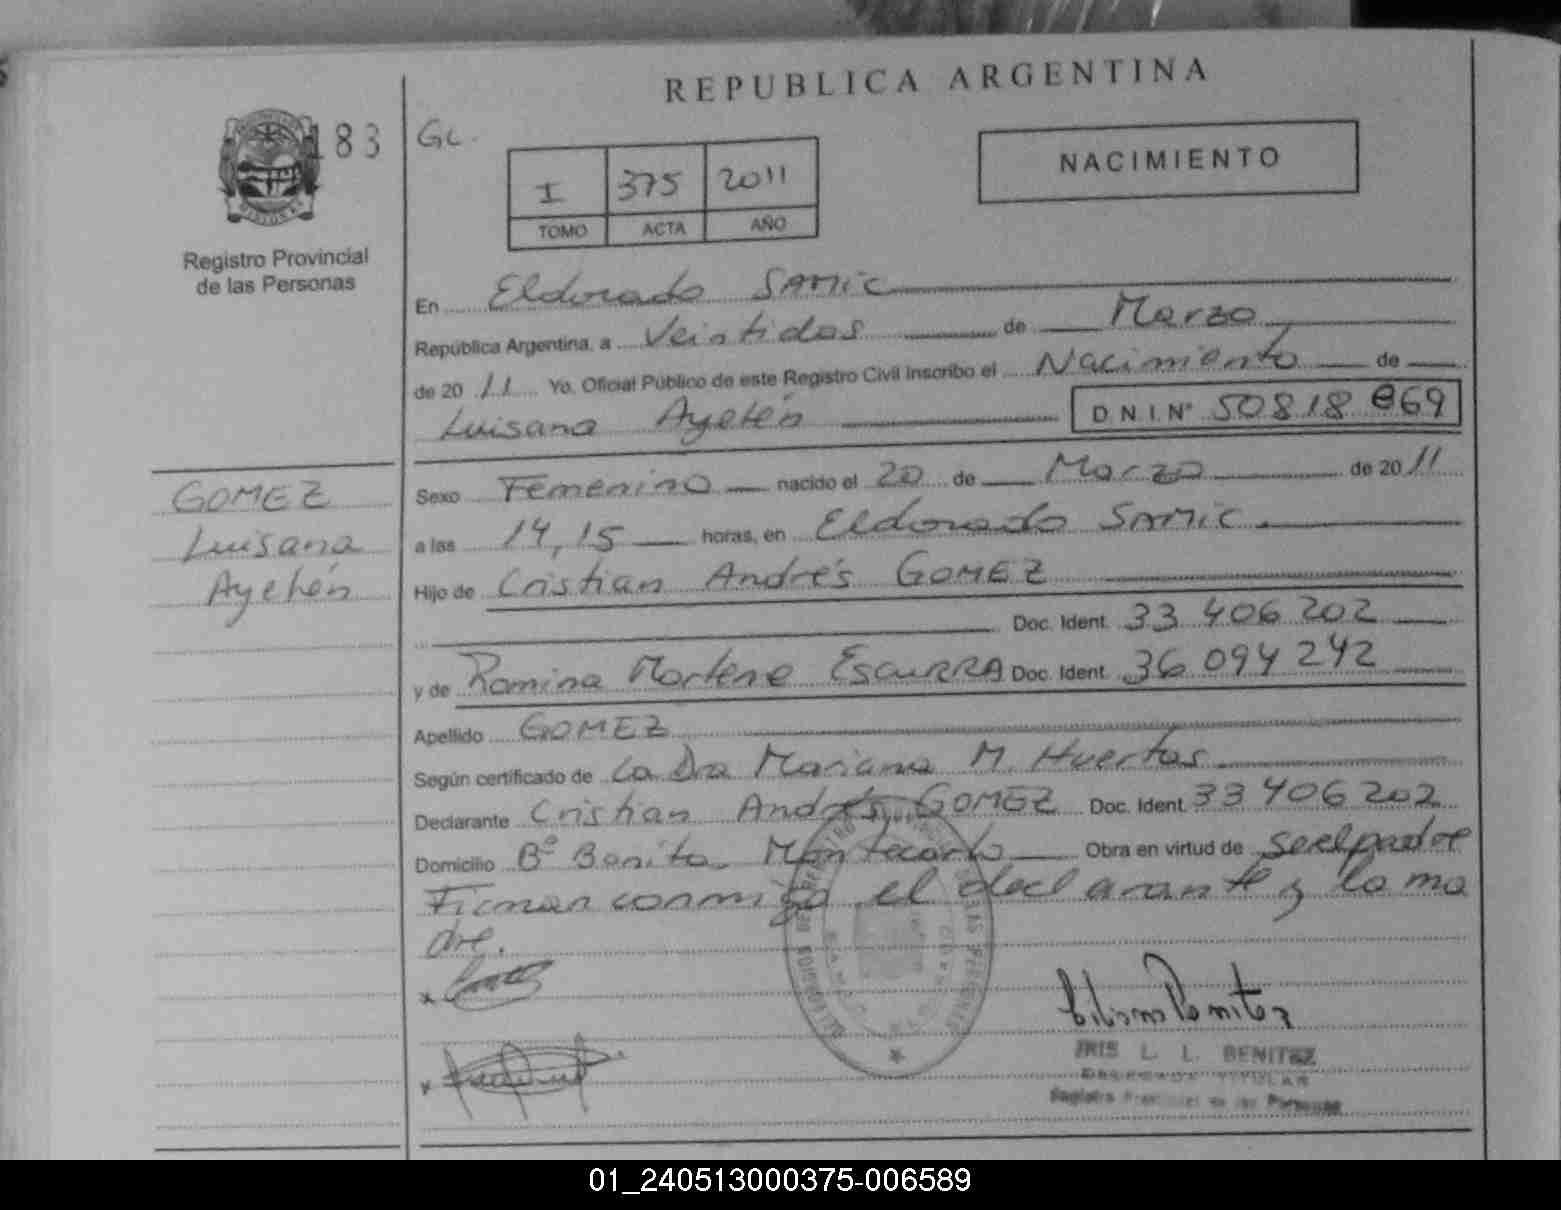 REPUBLICA ARGENTINA
183
GC.
NACIMIENTO
I 375 2011
TOMO ACTA AÑO
Registro Provincial
de las Personas
En Eldorado SAMIC
República Argentina, a Veintidos de Marzo
de 2011 Yo, Oficial Público de este Registro Civil Inscribo el Nacimiento de
Luisana Ayelén D.N.I.Nº 50818869
GOMEZ
Luisana
Ayelén
Sexo Femenino nacido el 20 de Marzo de 2011
a las 14,15 horas, en Eldorado SAMIC.
Hijo de Cristian Andrés GOMEZ
Doc. Ident. 33 406 202
y de Romina Marlene ESCURRA Doc. Ident. 36 094 242
Apellido GOMEZ
Según certificado de La Dra Mariana M. Huertas
Declarante Cristian Andrés GOMEZ Doc. Ident. 33 406 202
Domicilio Bº Bonito Montecarlo Obra en virtud de ser el padre
Firman conmigo el declarante y la ma
dre.
IRIS L. L. BENITEZ
DELEGADA TITULAR
Registro Provincial de las Personas
01_240513000375-006589